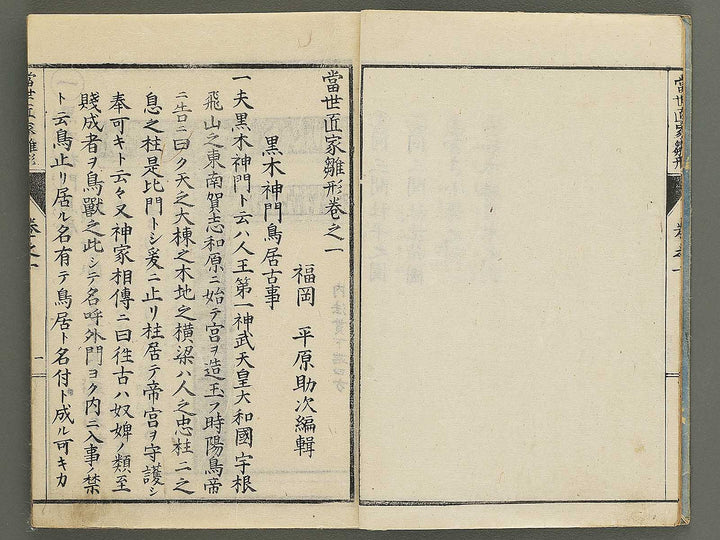 當世匠家雛形
卷之一
當世匠家雛形卷之一
福岡 平原助次編輯
黒木神門鳥居古事
一夫黒木神門ト云ハ人王第一神武天皇大和國宇根
飛山之東南賀志和原ニ始テ宮ヲ造玉フ時陽鳥帝
ニ告ロニ曰ク天之大棟之木地之横梁ハ人之忠柱ニ之
息之柱是比門トシ爰ニ止リ柱居テ帝宮ヲ守護シ
奉可キト云々又神家相傳ニ曰徃古ハ奴婢ノ類至
賤成者ヲ鳥獸之此シテ名呼外門ヨク内ニ入事ノ禁
ト云鳥止リ居ル名有テ鳥居ト名付ト成ル可キカ
當世匠家雛形
卷之一
一